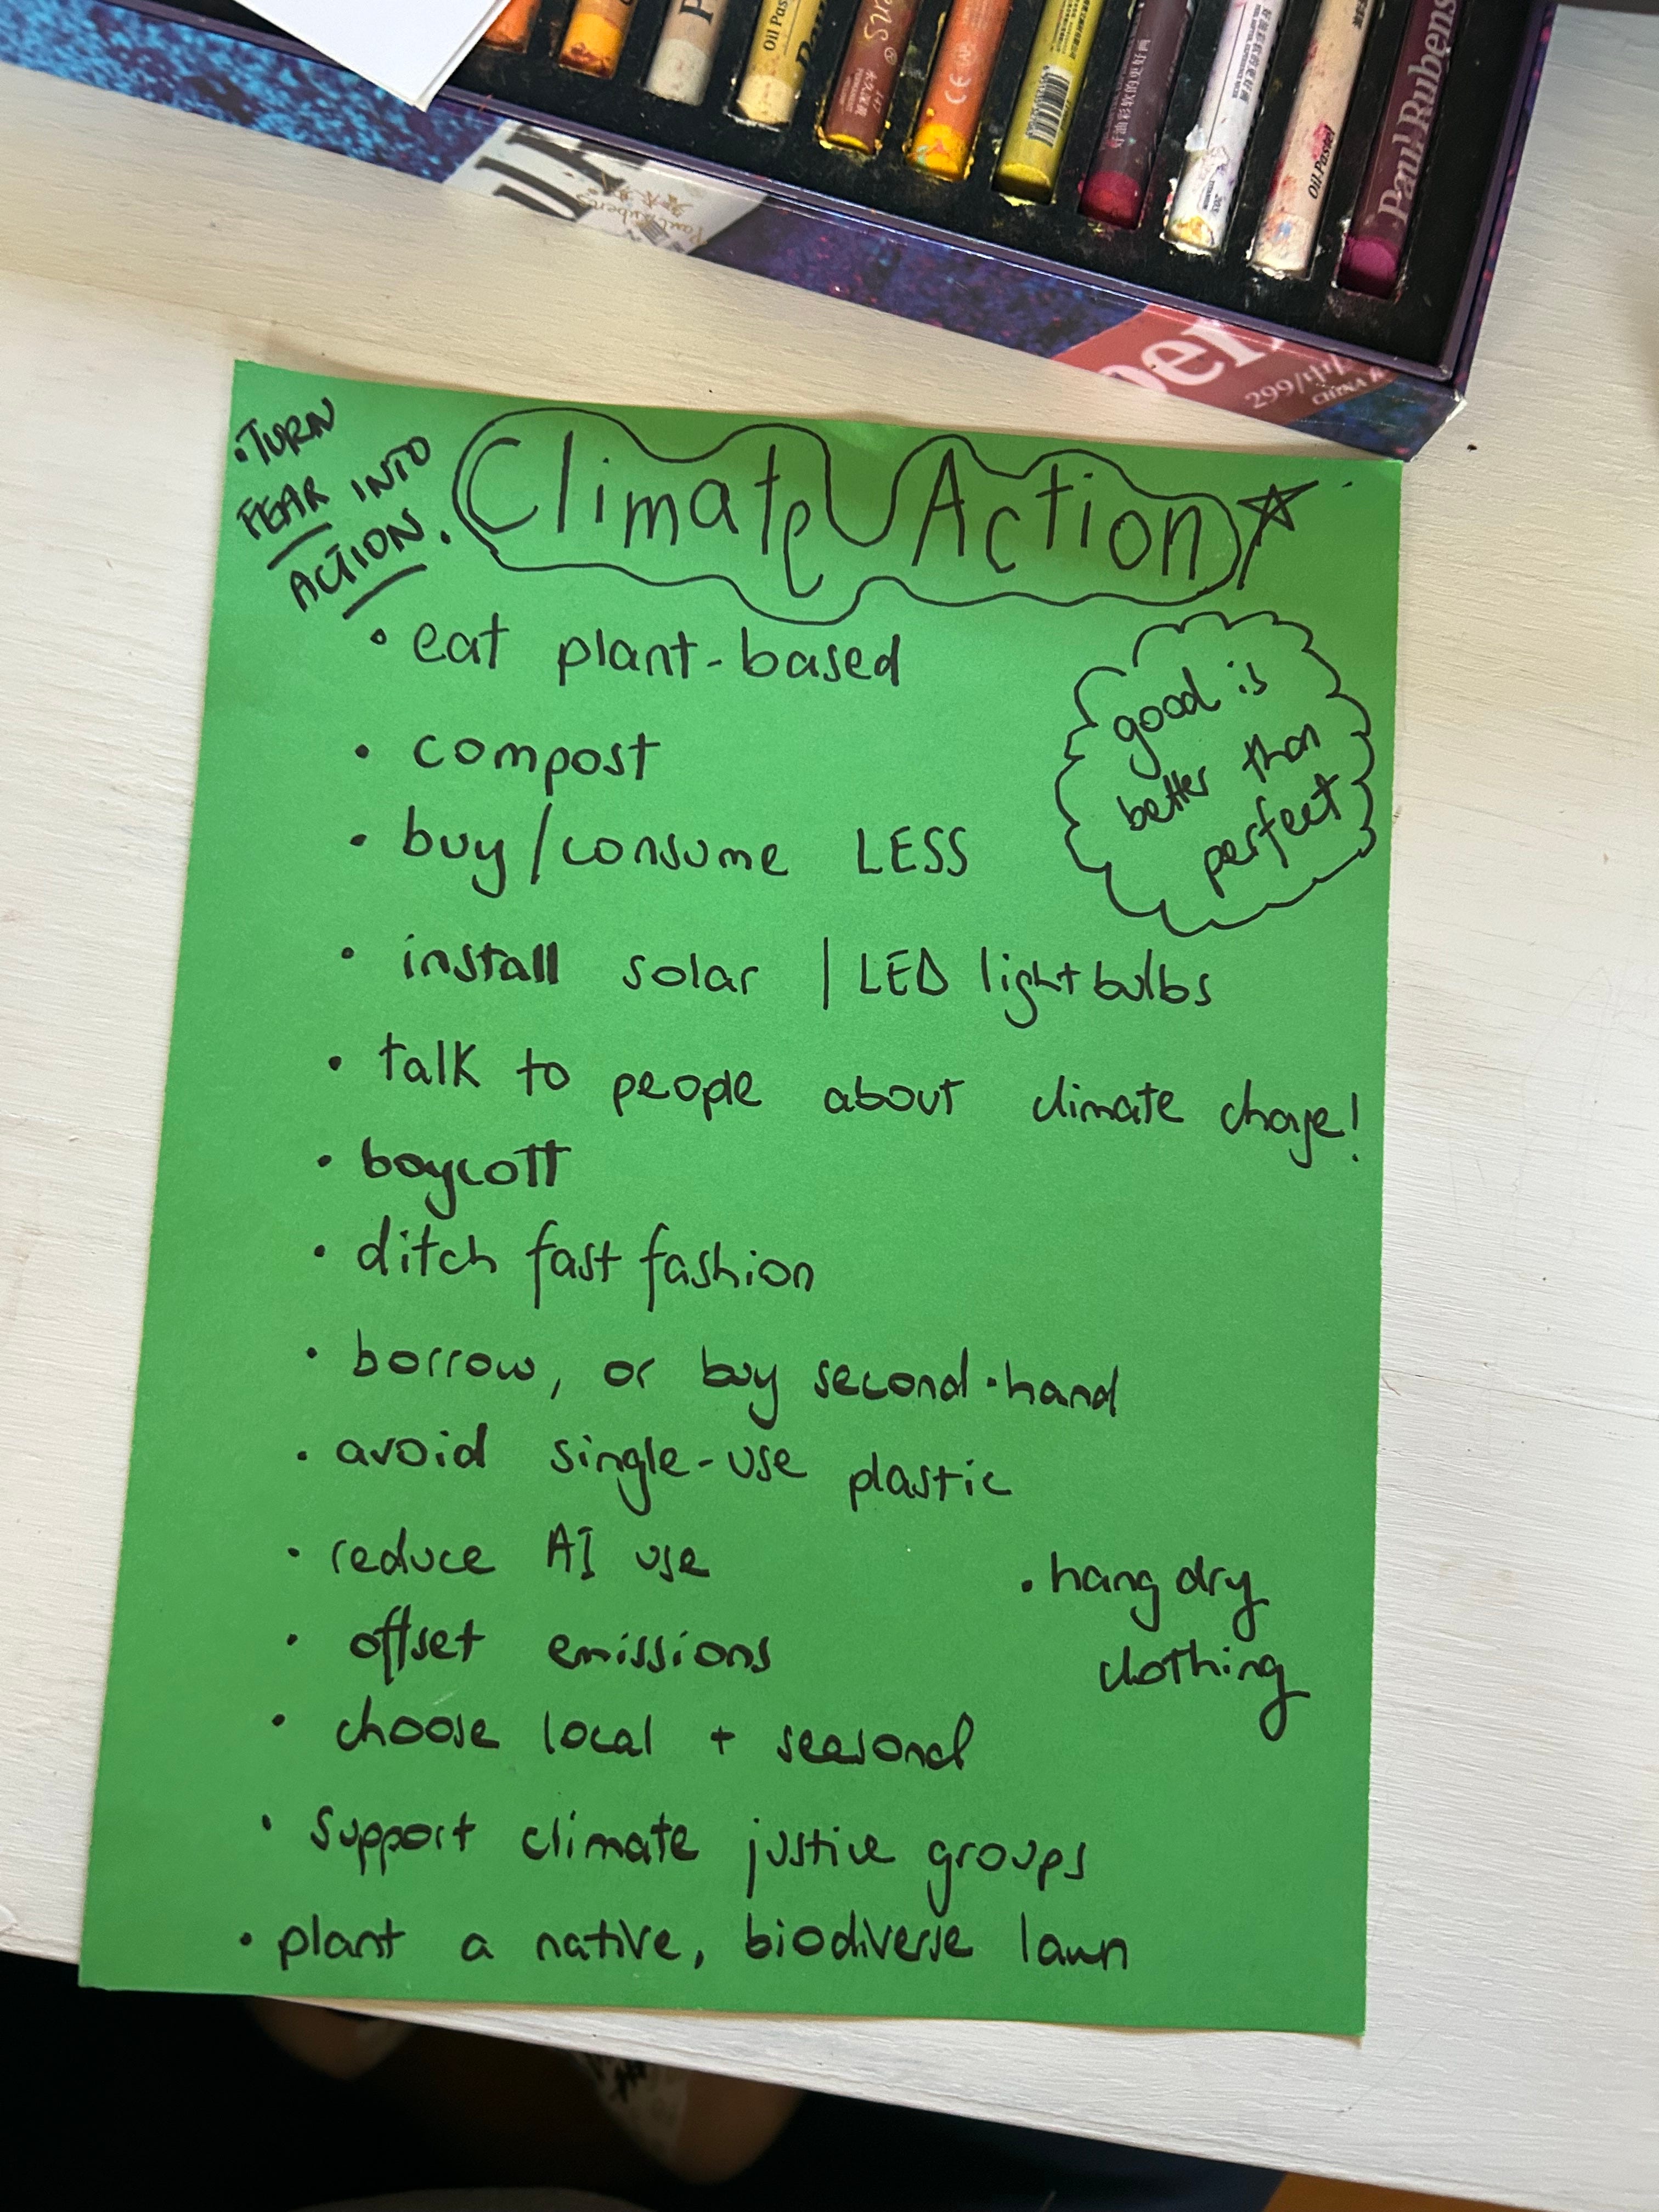 Oil Pas
Oil Pastel
Paul Rubens
Paul Rubens
299/
CHINA
• TURN
FEAR INTO
ACTION.
Climate Action
• eat plant-based
good is
better than
perfect
• compost
• buy/consume LESS
• install solar | LED lightbulbs
• talk to people about climate change!
• boycott
• ditch fast fashion
• borrow, or buy second-hand
• avoid single-use plastic
• reduce AI use
• hang dry
clothing
• offset emissions
• choose local + seasonal
• support climate justice groups
• plant a native, biodiverse lawn